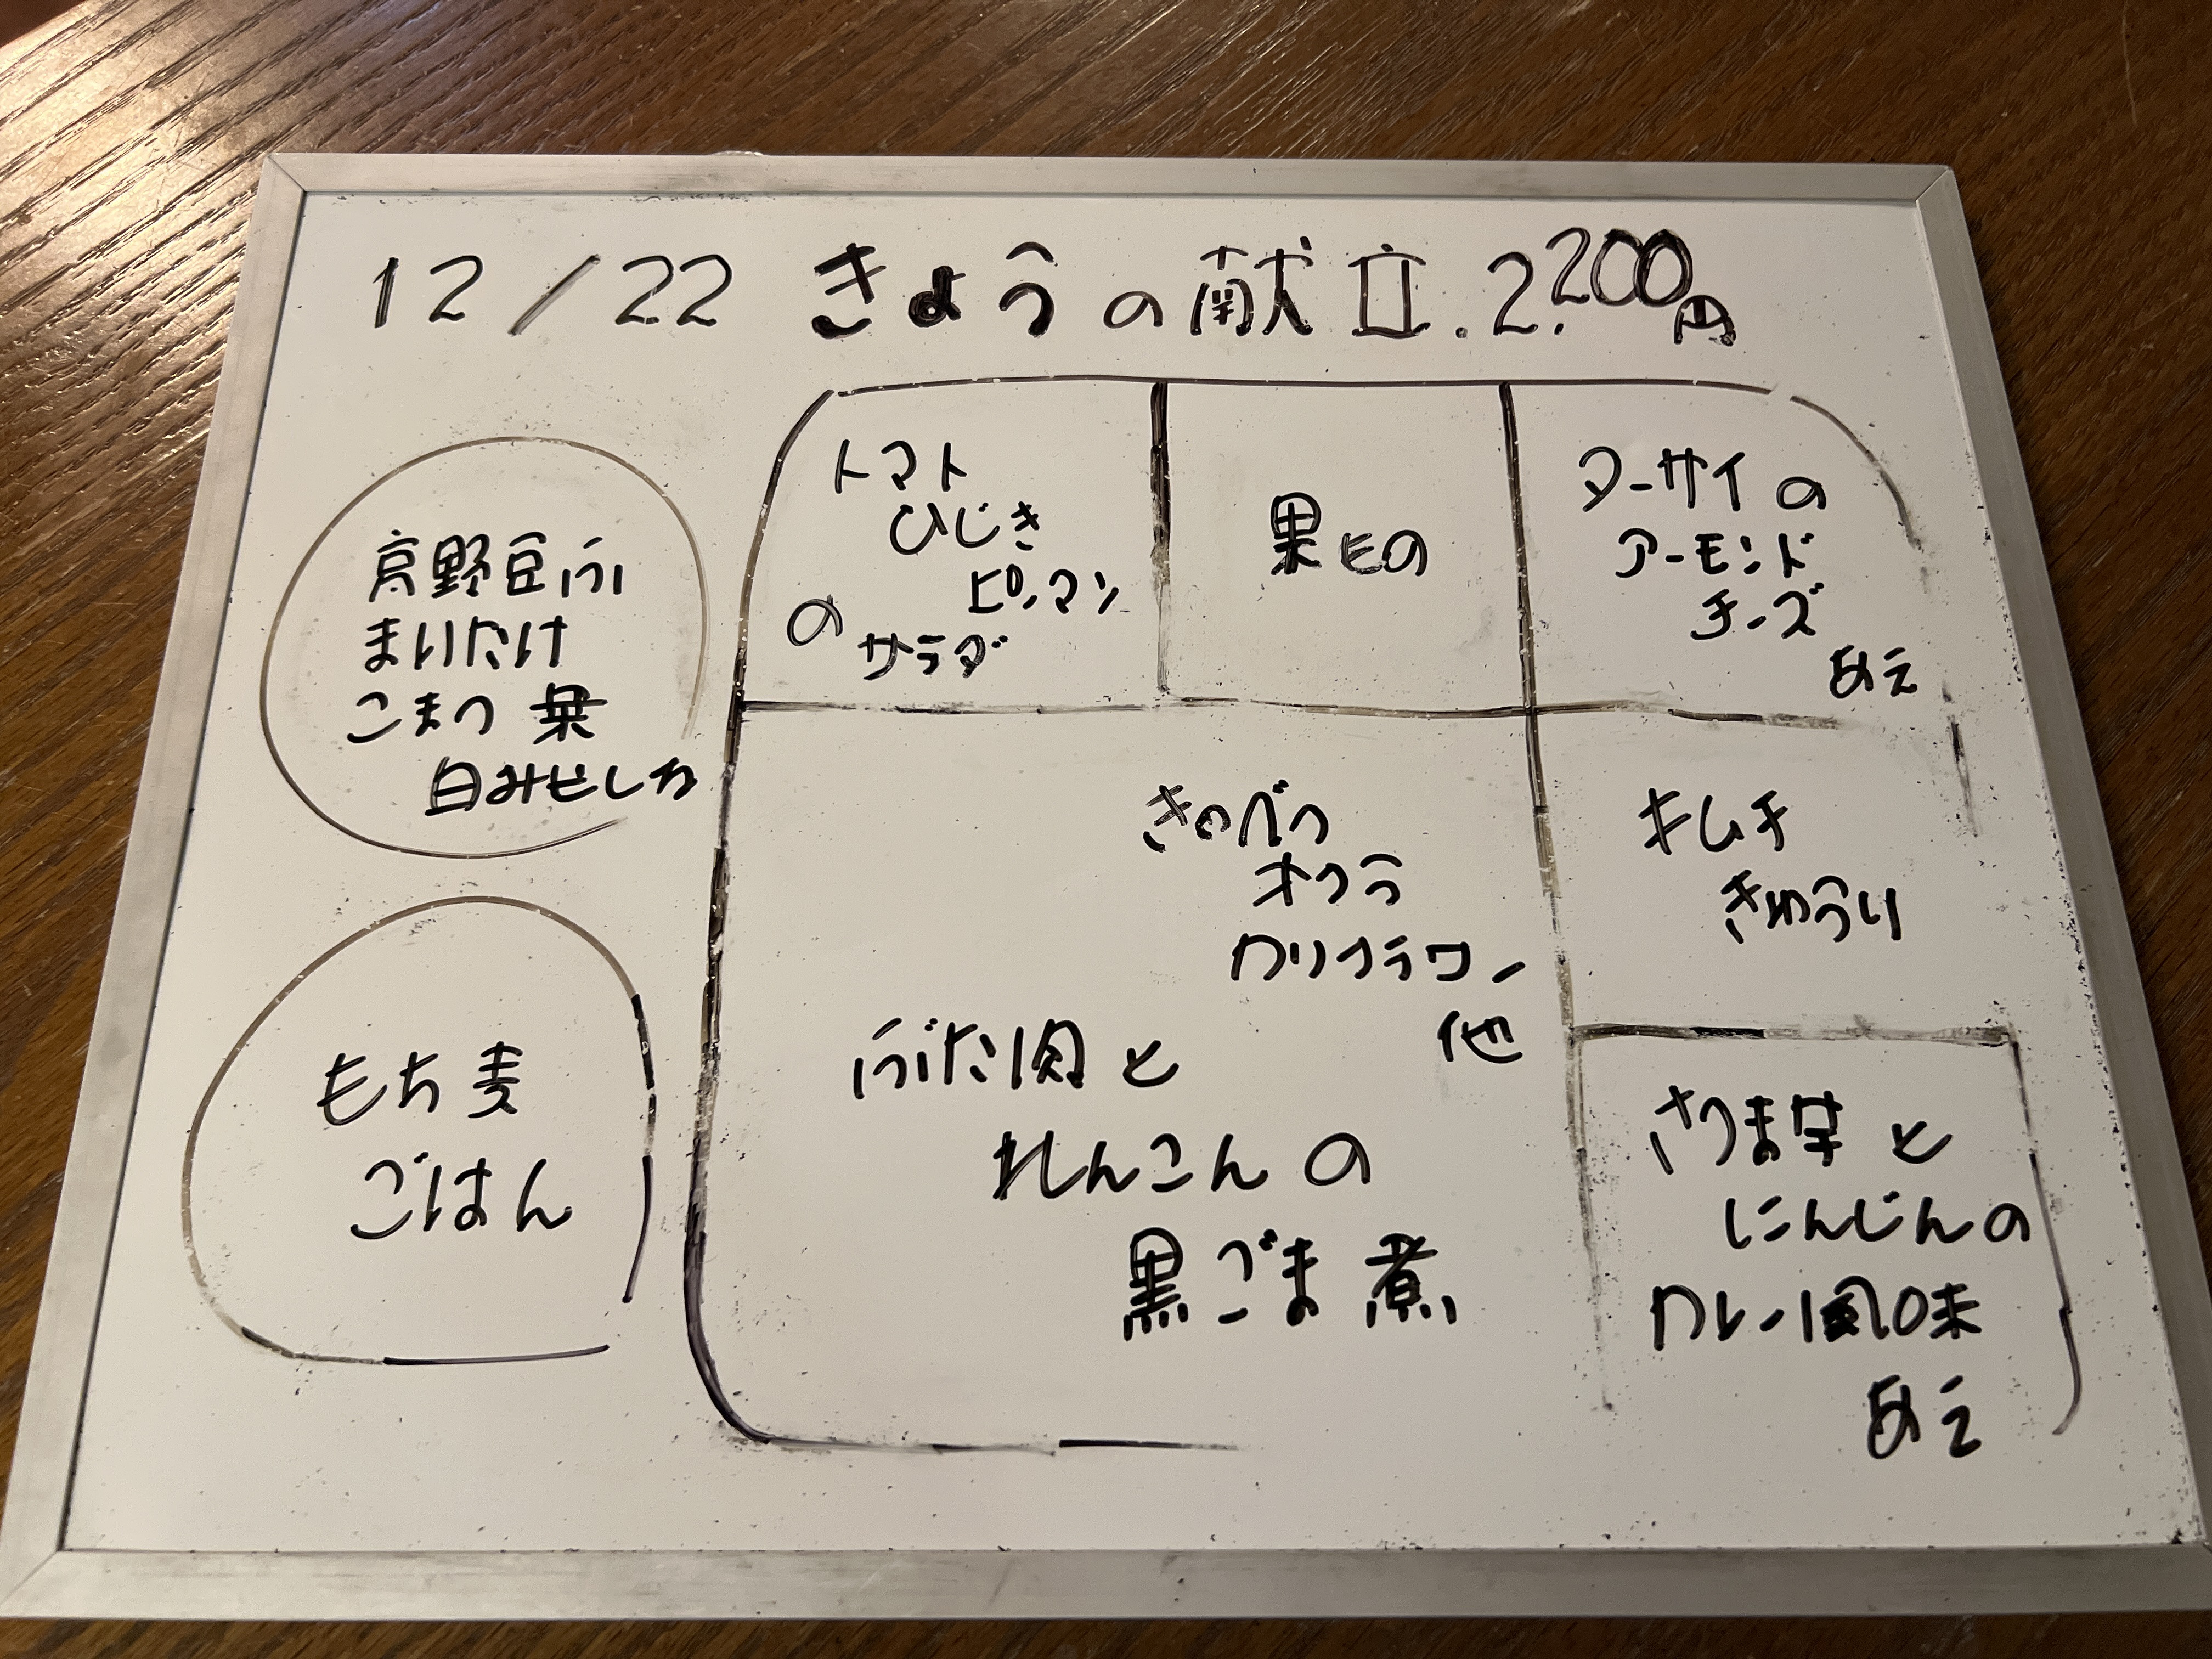 12/22 きょうの献立.2,200円
高野豆ふ
まいたけ
こまつ菜
白みそしる
もち麦
ごはん
トマト
ひじき
ピーマン
の
サラダ
果もの
マーサイの
アーモンド
チーズ
あえ
きゃべつ
オクラ
カリフラワー
他
ぶた肉と
れんこんの
黒ごま煮
キムチ
きゅうり
さつま芋と
にんじんの
カレー風味
あえ